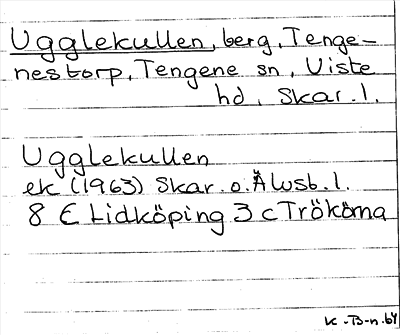 Ugglekullen, berg, Tenge-
nestorp, Tengene sn, Viste
hd, Skar. l.
Ugglekullen
ek (1963) Skar. o. Älvsb. l.
8 C Lidköping 3 c Trökörna